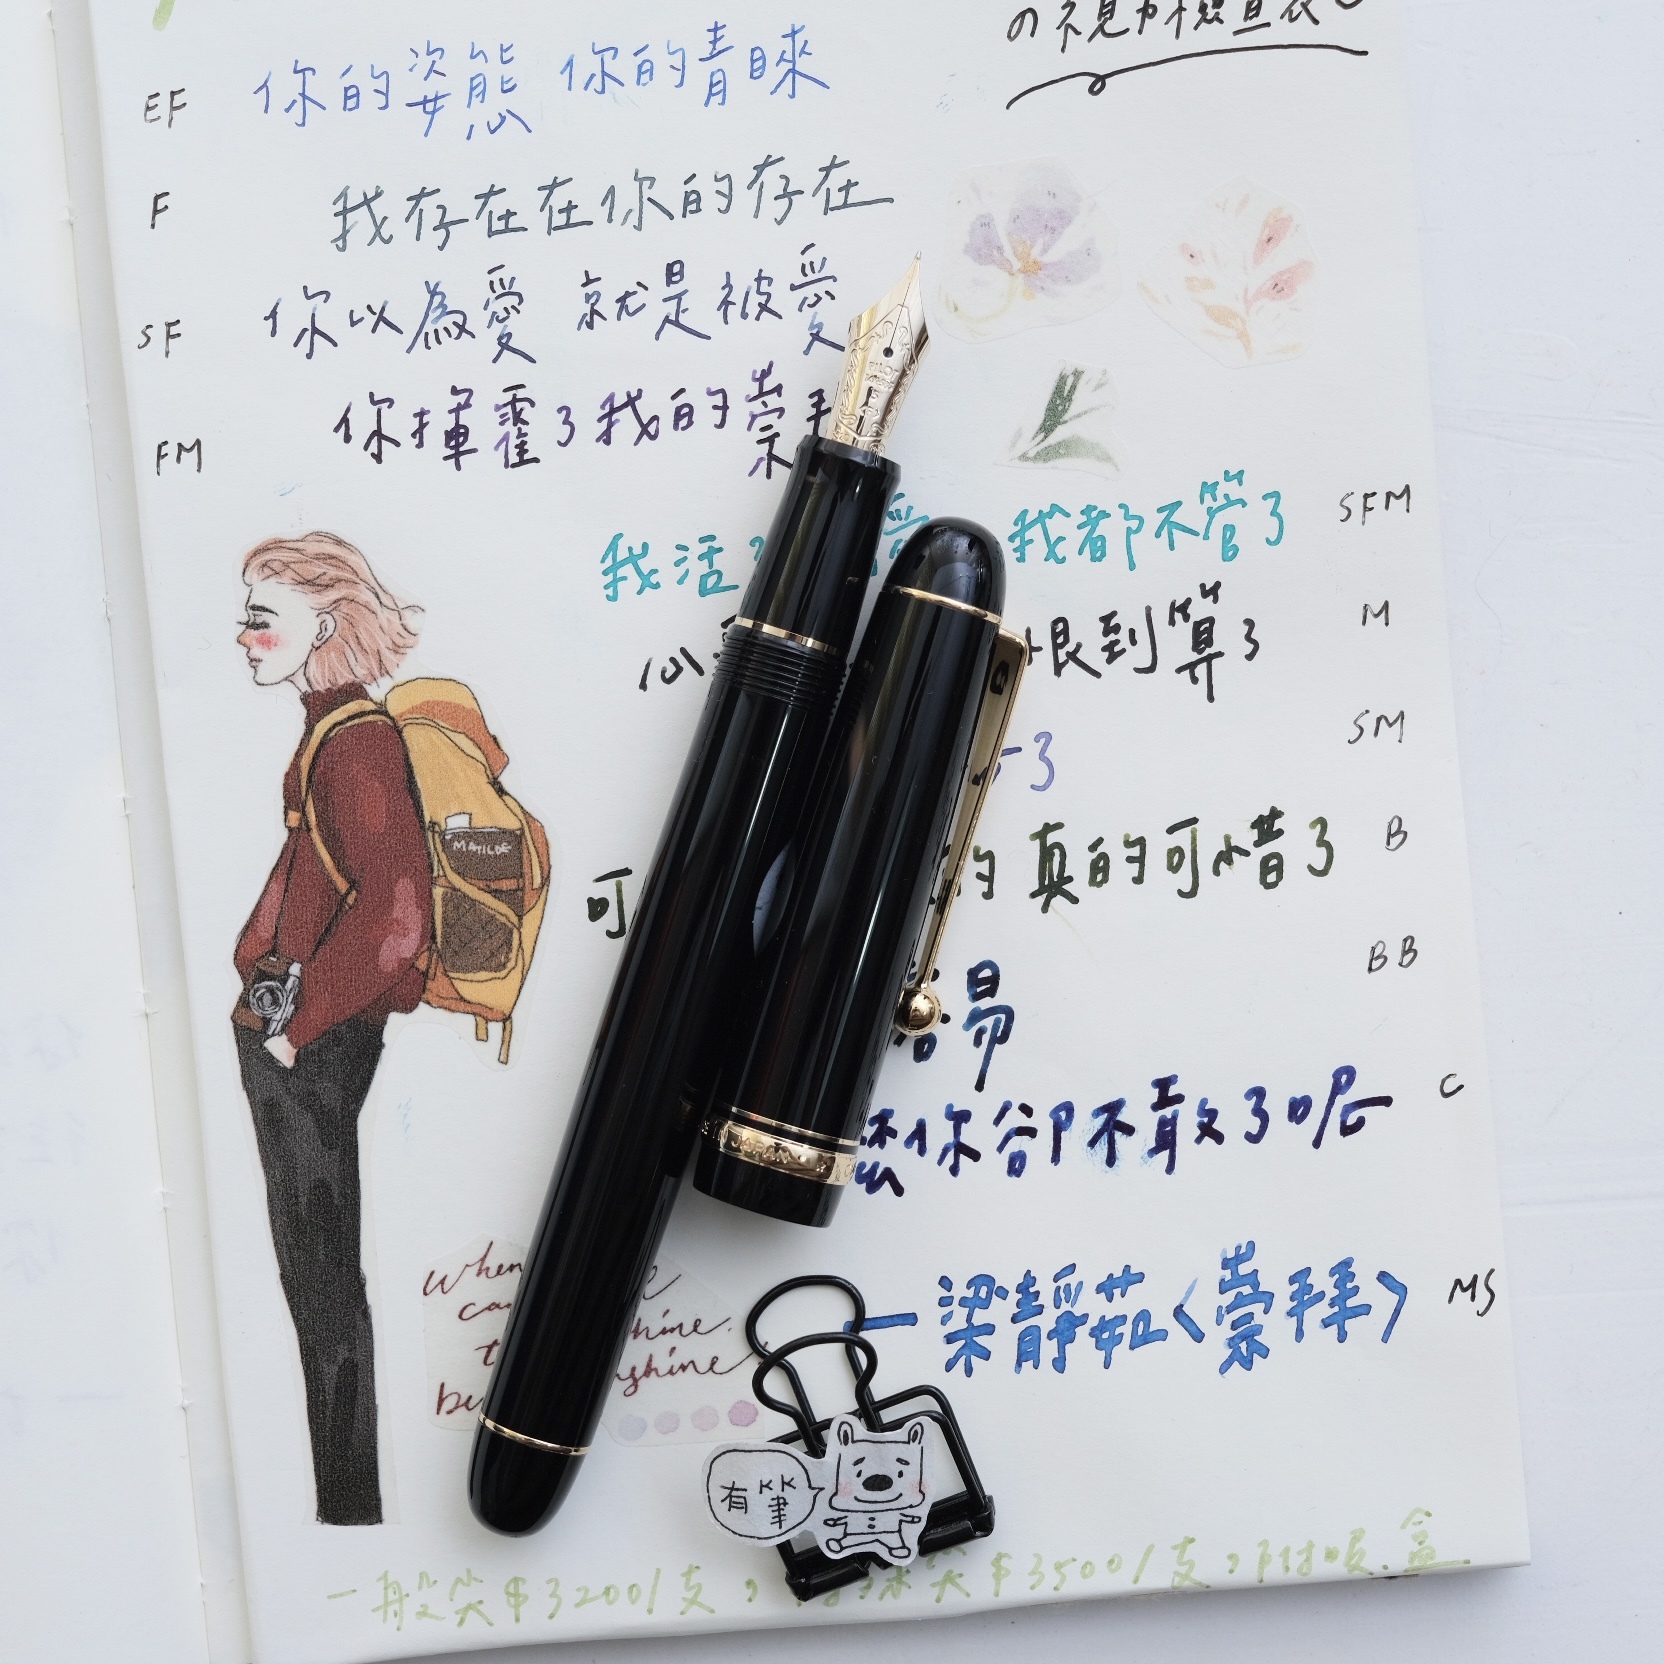 の視力檢查表
EF 你的姿態 你的青睞
F 我存在在你的存在
SF 你以為愛 就是被愛
FM 你揮霍了我的崇
我活 愛 我都不管了 SFM
心 恨到算了 M
了 SM
可 的 真的可惜了 B
易 BB
麼你卻不敢了呢 C
一梁靜茹〈崇拜〉 MS
MATILDE
JAPAN
When
ca hine.
t nshine
be
有筆
一般尖$3200/支, 尖$3500/支,附吸.盒